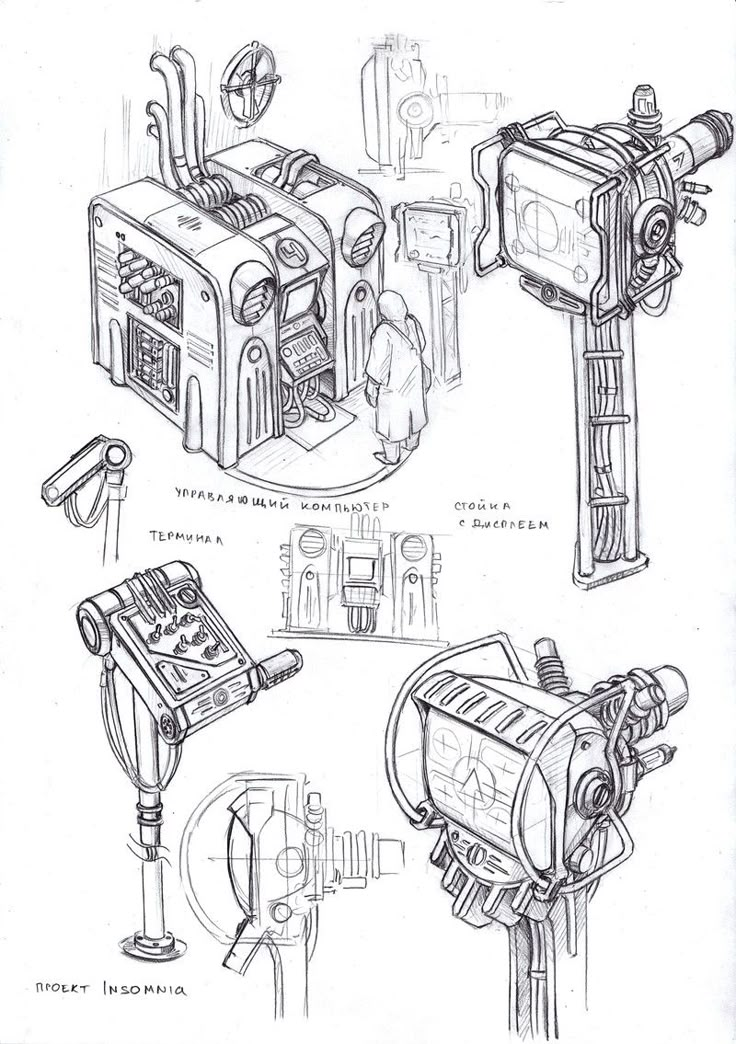 4
УПРАВЛЯЮЩИЙ КОМПЬЮТЕР
СТОЙКА
С ДИСПЛЕЕМ
ТЕРМИНАЛ
ПРОЕКТ INSOMNIA